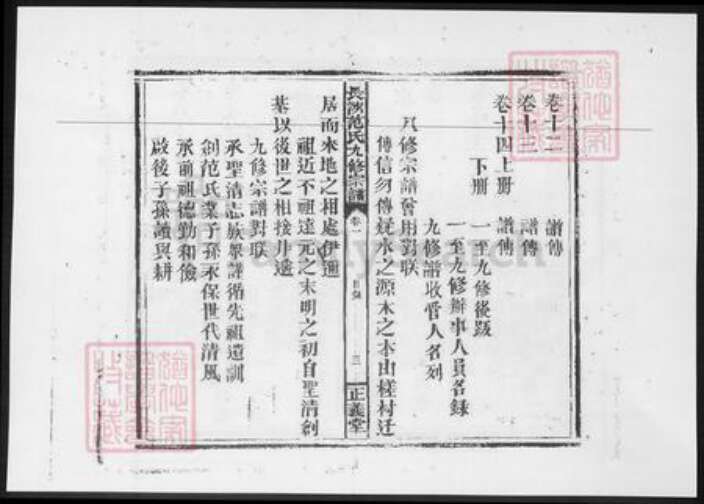 卷十二 譜傳
卷十三 譜傳
卷十四上册 譜傳
下册 一至九修後跋
一至九修辦事人員名錄
九修譜收管人名列
八修宗譜曾用對联
傳信勿傳疑水之源木之本由槎村迁
長溪范氏九修宗譜 卷一 目錄 三 正義堂
居而来地之相處伊邇
祖近不祖遠元之末明之初自聖清創
基以後世之相接井遙
九修宗譜對联
承聖清志族衆譯循先祖遺訓
創范氏業子孫永保世代清風
承前祖德勤和儉
啟後子孫讀與耕